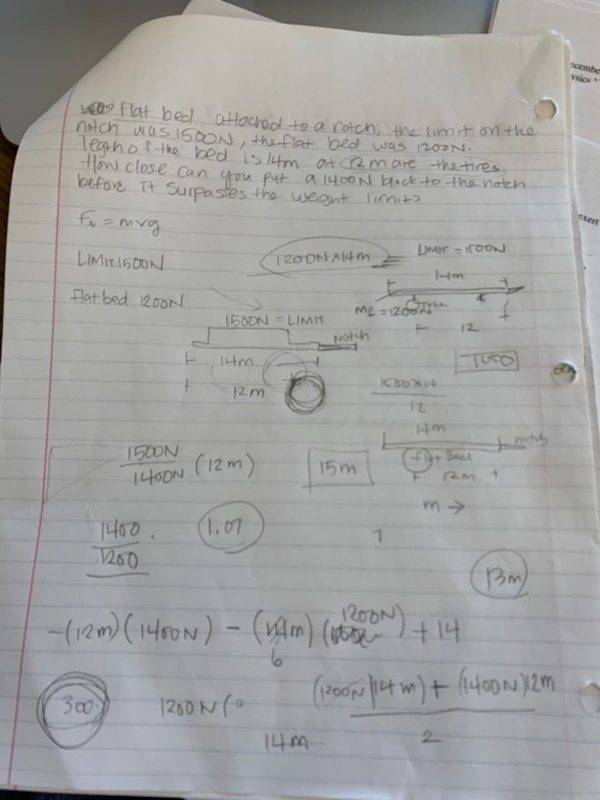 Flat bed attached to a notch, the limit on the
notch was 1500N, the flat bed was 1200N.
legth of the bed is 14m at 12m are the tires.
How close can you put a 1400N block to the notch
before it surpasses the weight limit?
LIMIT 1500N
1200N×14m
LIMIT = 1500N
14m
Flatbed 1200N
= 1200N
12
1500N = LIMIT
Notch
14m
12m
12
14m
notch
1500N
1400N (12m)
15m
12m
m →
1400
1200
1.07
13m
-(12m)(1400N) - (14m) (1200N) + 14
6
300
1200N (
(1200N)(14m) + (1400N)12m
14m
2